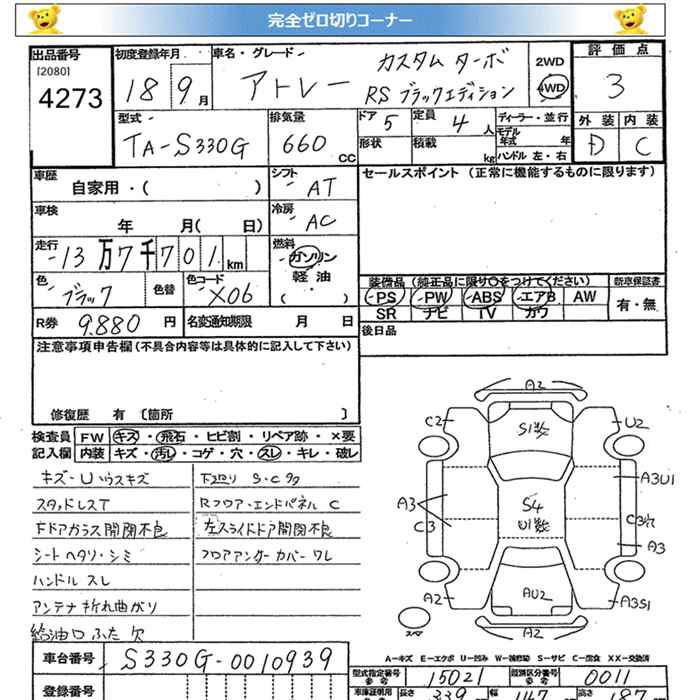 完全ゼロ切りコーナー
出品番号 初度登録年月 車名・グレード カスタム ターボ 2WD 評価点
[2080] 4273 18 9月 アトレー RSブラックエディション 4WD 3
型式 TA-S330G 排気量 660 CC ドア 5 定員 4人 ディーラー・並行 外装 内装
形状 積載 kg モデル年式 年 ハンドル 左・右 D C
車歴 自家用・( ) シフト AT セールスポイント (正常に機能するものに限ります)
車検 年 月( 日) 冷房 AC
走行 13万7千701km 燃料 ガソリン 軽油 ( )
色 ブラック 色替 色コード X06 装備品 (純正品に限り○をつけてください) 新車保証書
PS PW ABS エアB AW 有・無
SR ナビ TV カワ
R券 9.880 円 名変通知期限 月 日 後日品
注意事項申告欄(不具合内容等は具体的に記入して下さい)
修復歴 有〔箇所 〕
検査員 FW キズ・飛石・ヒビ割・リペア跡・×要
記入欄 内装 キズ・汚レ・コゲ・穴・スレ・キレ・破レ
キズ・Uハウスキズ 下回り S・Cタ
スタッドレスT Rフロア・エンドパネル C
Fドアガラス開閉不良 左スライドドア開閉不良
シート ヘタリ・シミ フロアアンダーカバーワレ
ハンドル スレ
アンテナ 折れ曲がり
給油口 ふた 欠
A2
C2 S1 U2
A3U1
A3 C3 S4 U1 C3穴
A3
A2 AU2 A3S1
スペア A2
A-キズ E-エクボ U-凹み W-補修跡 S-サビ C-腐食 XX-交換済
車台番号 S330G-0010939 型式指定番号 参考 15021 類別区分番号 参考 0011
登録番号 車庫証明用 参考 長さ 339 幅 147 高さ 187